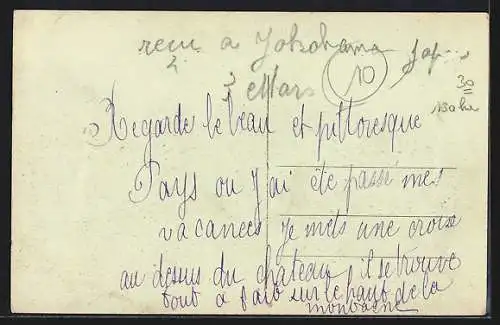 recu a Yokohama Jap
3 Mars
10
30
Regarde le beau et pittoresque
Pays ou J'ai éte passé mes
vacances Je mets une croix
au dessus du chateau il se trouve
tout a fait sur le haut de la
montagne